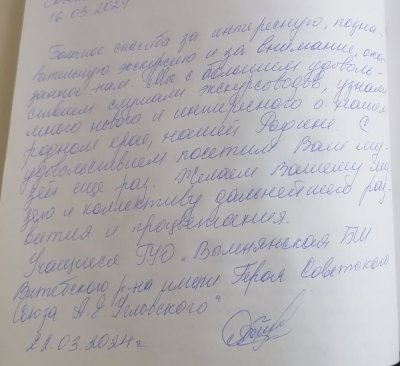 16.03.2024
Большое спасибо за интересную, позна-
вательную экскурсию и за внимание, ока-
занное нам. Мы с большим удоволь-
ствием слушали экскурсоводов, узнали
много нового и интересного о нашем
родном крае, нашей Родине. С
удовольствием посетим Ваш му-
зей еще раз. Желаем Вашему му-
зею и коллективу дальнейшего раз-
вития и процветания.
Учащиеся ГУО „Вымнянская БШ
Витебского р-на имени Героя Советского
Союза А.Е. Угловского"
22.03.2024г